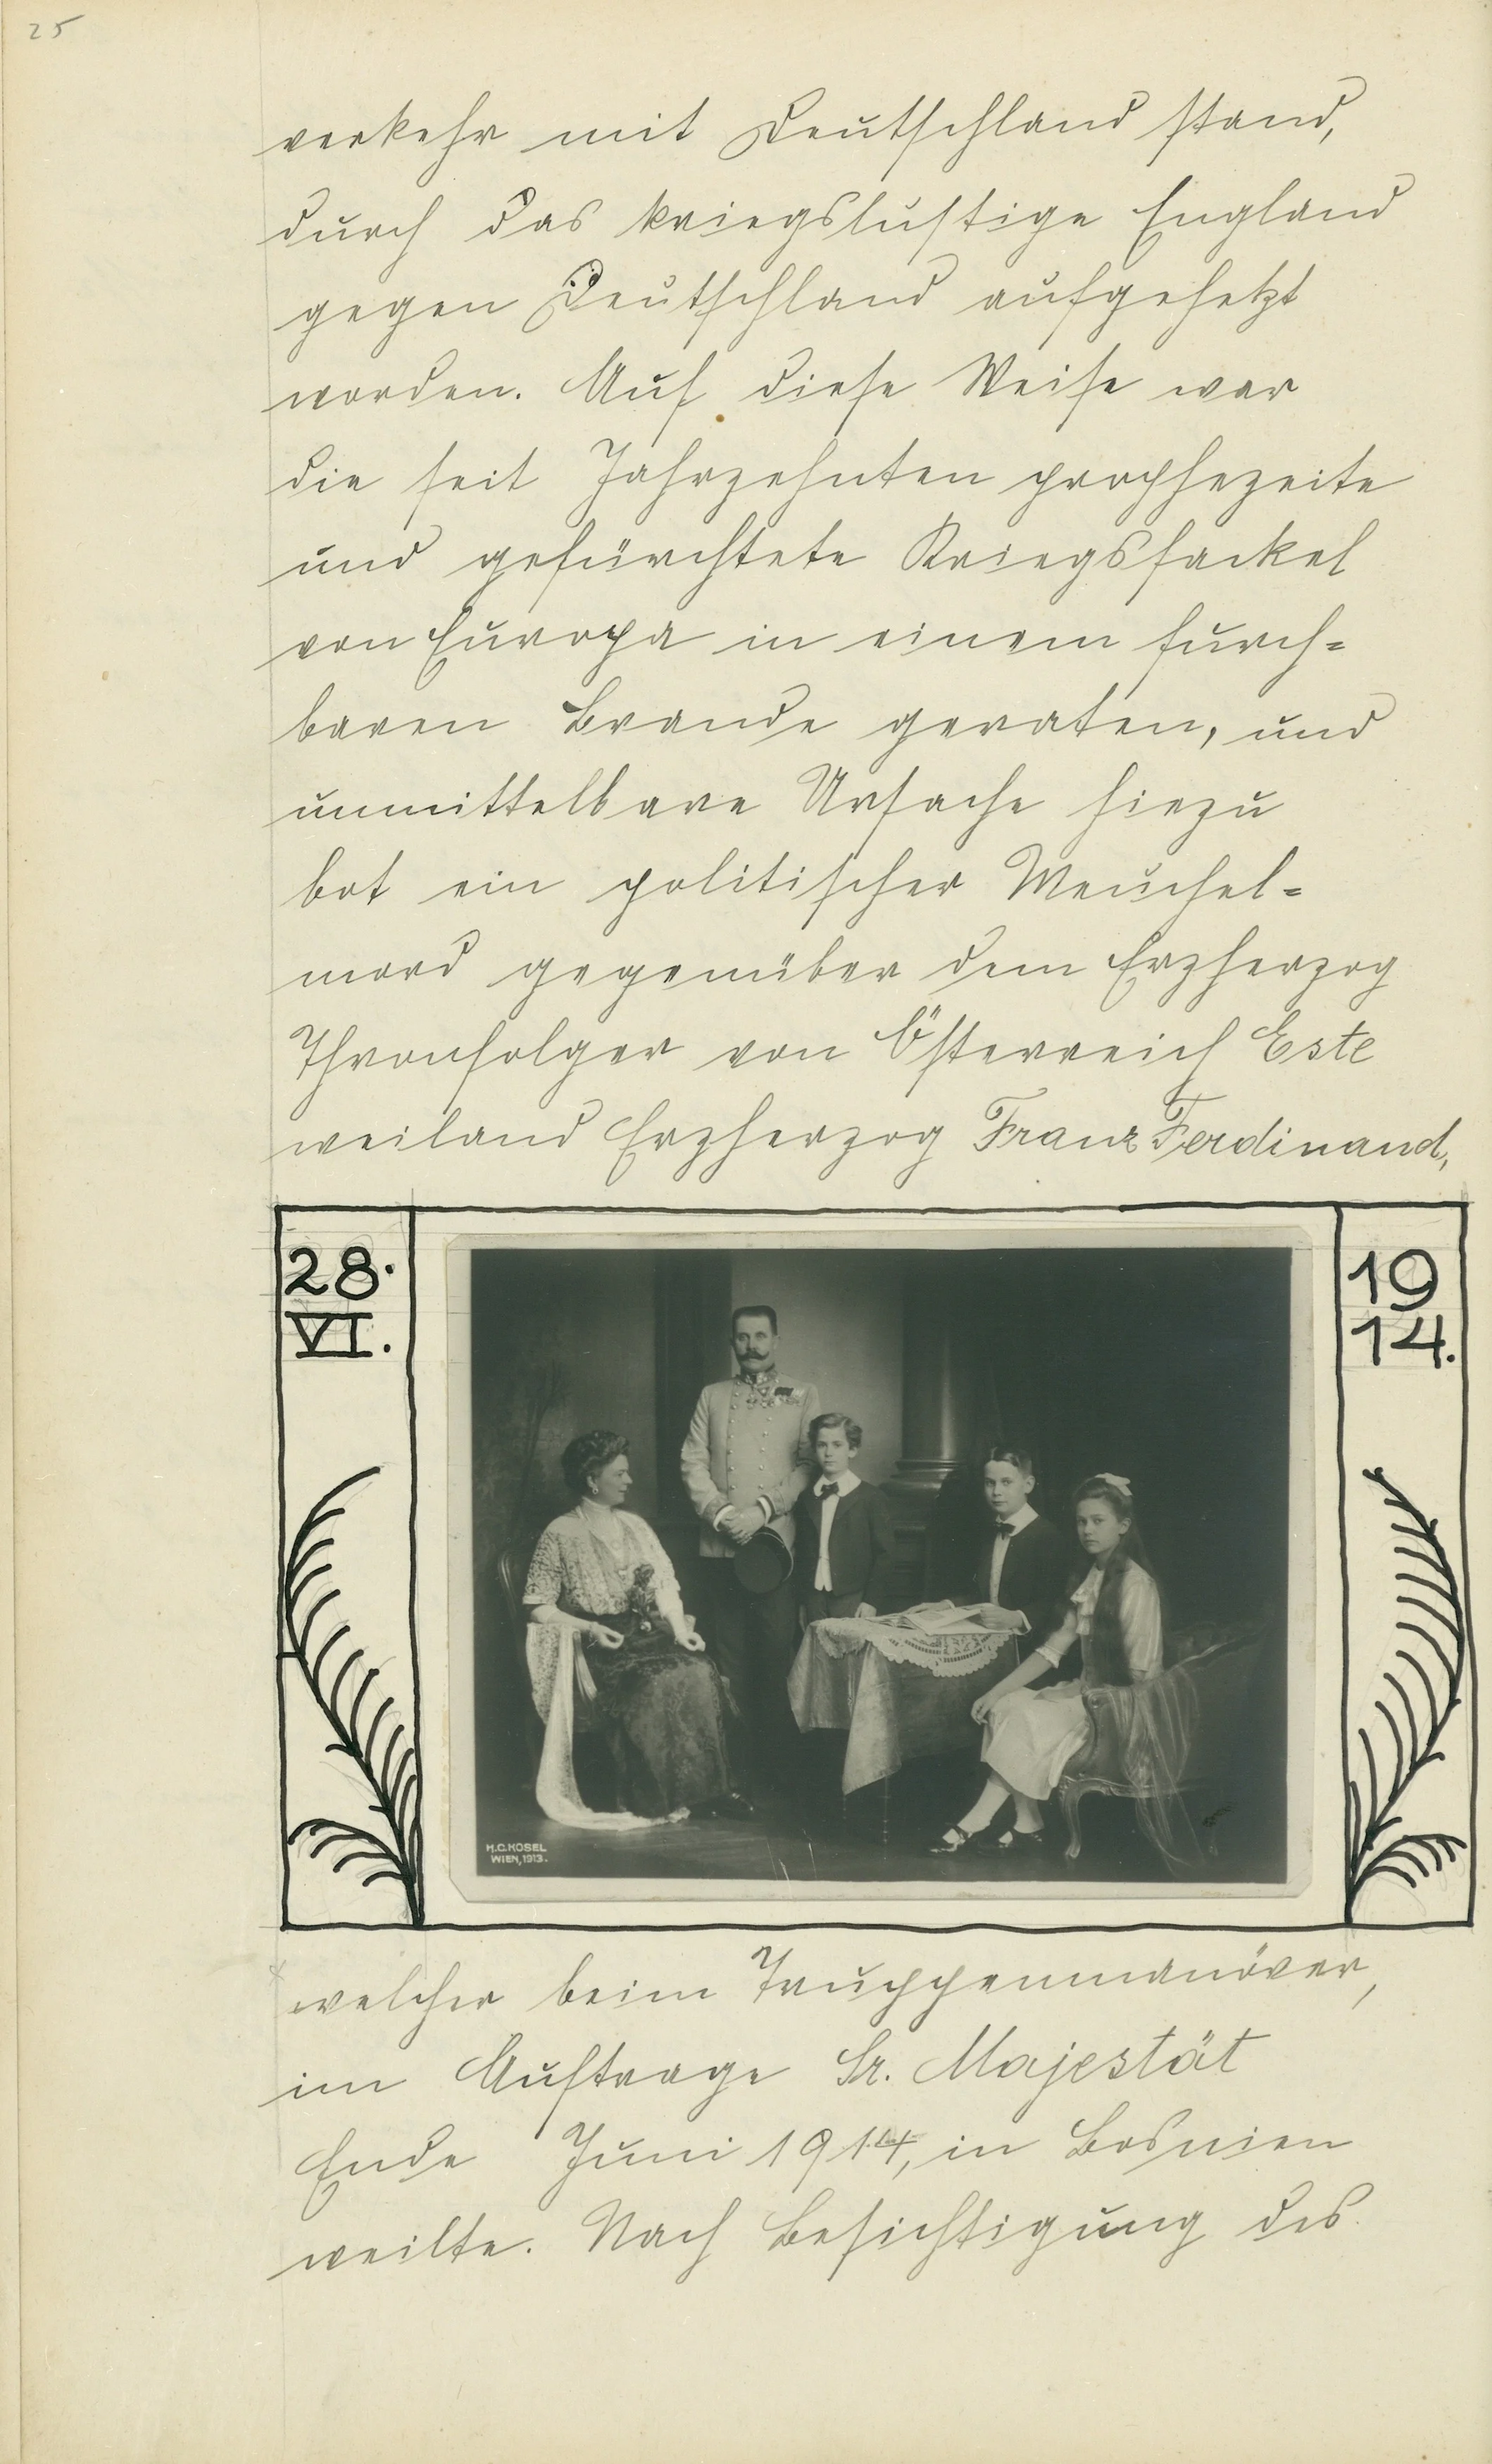 25
verkehr mit Deutschland stand,
durch das kriegslustige England
gegen Deutschland aufgehetzt
worden. Auf diese Weise war
die seit Jahrzehnten prophezeite
und gefürchtete Kriegsfackel
von Europa in einem furch=
baren Brande geraten, und
unmittelbare Ursache hiezu
bot ein politischer Meuchel=
mord gegenüber dem Erzherzog
Thronfolger von Österreich Este
weiland Erzherzog Franz Ferdinand,
28.
VI.
19
14.
H.C. KOSEL
WIEN, 1913.
welcher beim Truppenmanöver,
im Auftrage Sr. Majestät
Ende Juni 1914, in Bosnien
weilte. Nach Besichtigung des